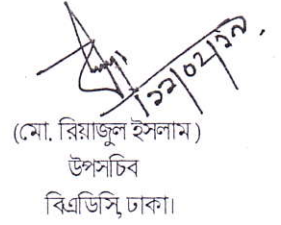 ২২/০২/১৭
(মো. রিয়াজুল ইসলাম )
উপসচিব
বিএডিসি, ঢাকা।